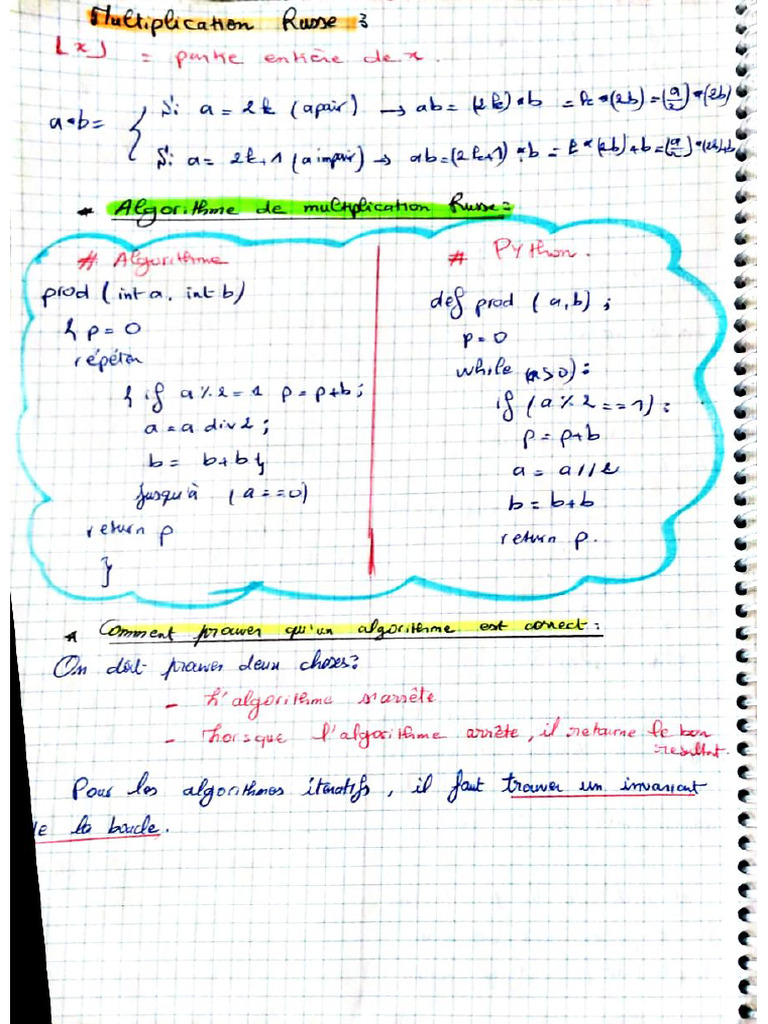 Multiplication Russe :
⌊x⌋ = partie entière de x.
a*b=
Si a = 2k (a pair) → ab = (2k)*b = k*(2b) = (a/2)*(2b)
Si a = 2k+1 (a impair) → ab = (2k+1)*b = k*(2b)+b = (a/2)*(2b)+b
* Algorithme de multiplication Russe :
# Algorithme
prod (int a, int b)
{ p = 0
répéter
{ if a % 2 = 1 p = p+b ;
a = a div 2 ;
b = b+b }
jusqu'à (a == 0)
return p
}
# Python.
def prod (a,b) ;
p = 0
while (a>0) :
if (a % 2 == 1) :
p = p+b
a = a//2
b = b+b
return p.
* Comment prouver qu'un algorithme est correct :
On doit prouver deux choses :
- L'algorithme s'arrête
- Lorsque l'algorithme arrête, il retourne le bon
resultat.
Pour les algorithmes itératifs, il faut trouver un invariant
de la boucle.